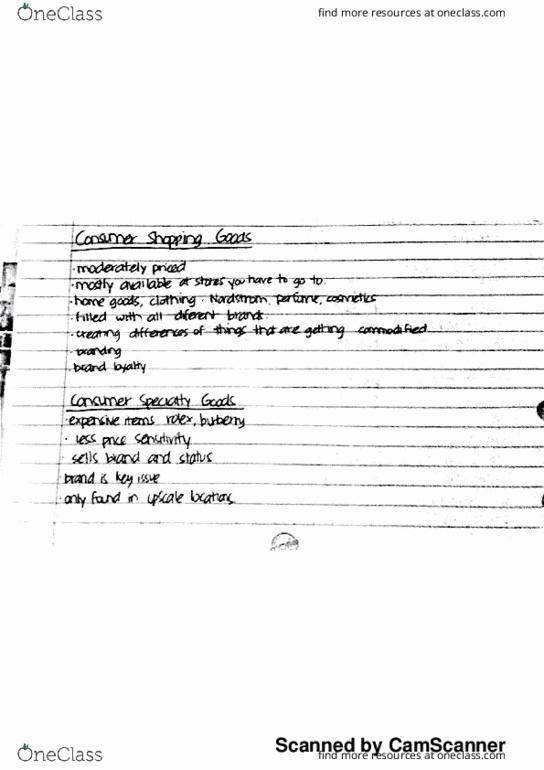 OneClass
find more resources at oneclass.com
Consumer Shopping Goods
·moderately priced
·mostly available at stores you have to go to.
·home goods, clothing · Nordstrom, perfume, cosmetics
·filled with all diferent brands.
·creating differences of things that are getting commodified
·branding
·brand loyalty
Consumer Specialty Goods
·expensive items rolex, burberry
· less price sensitivity
· sells brand and status
brand is key issue
·only found in upscale locations.
Scanned by CamScanner
OneClass
find more resources at oneclass.com